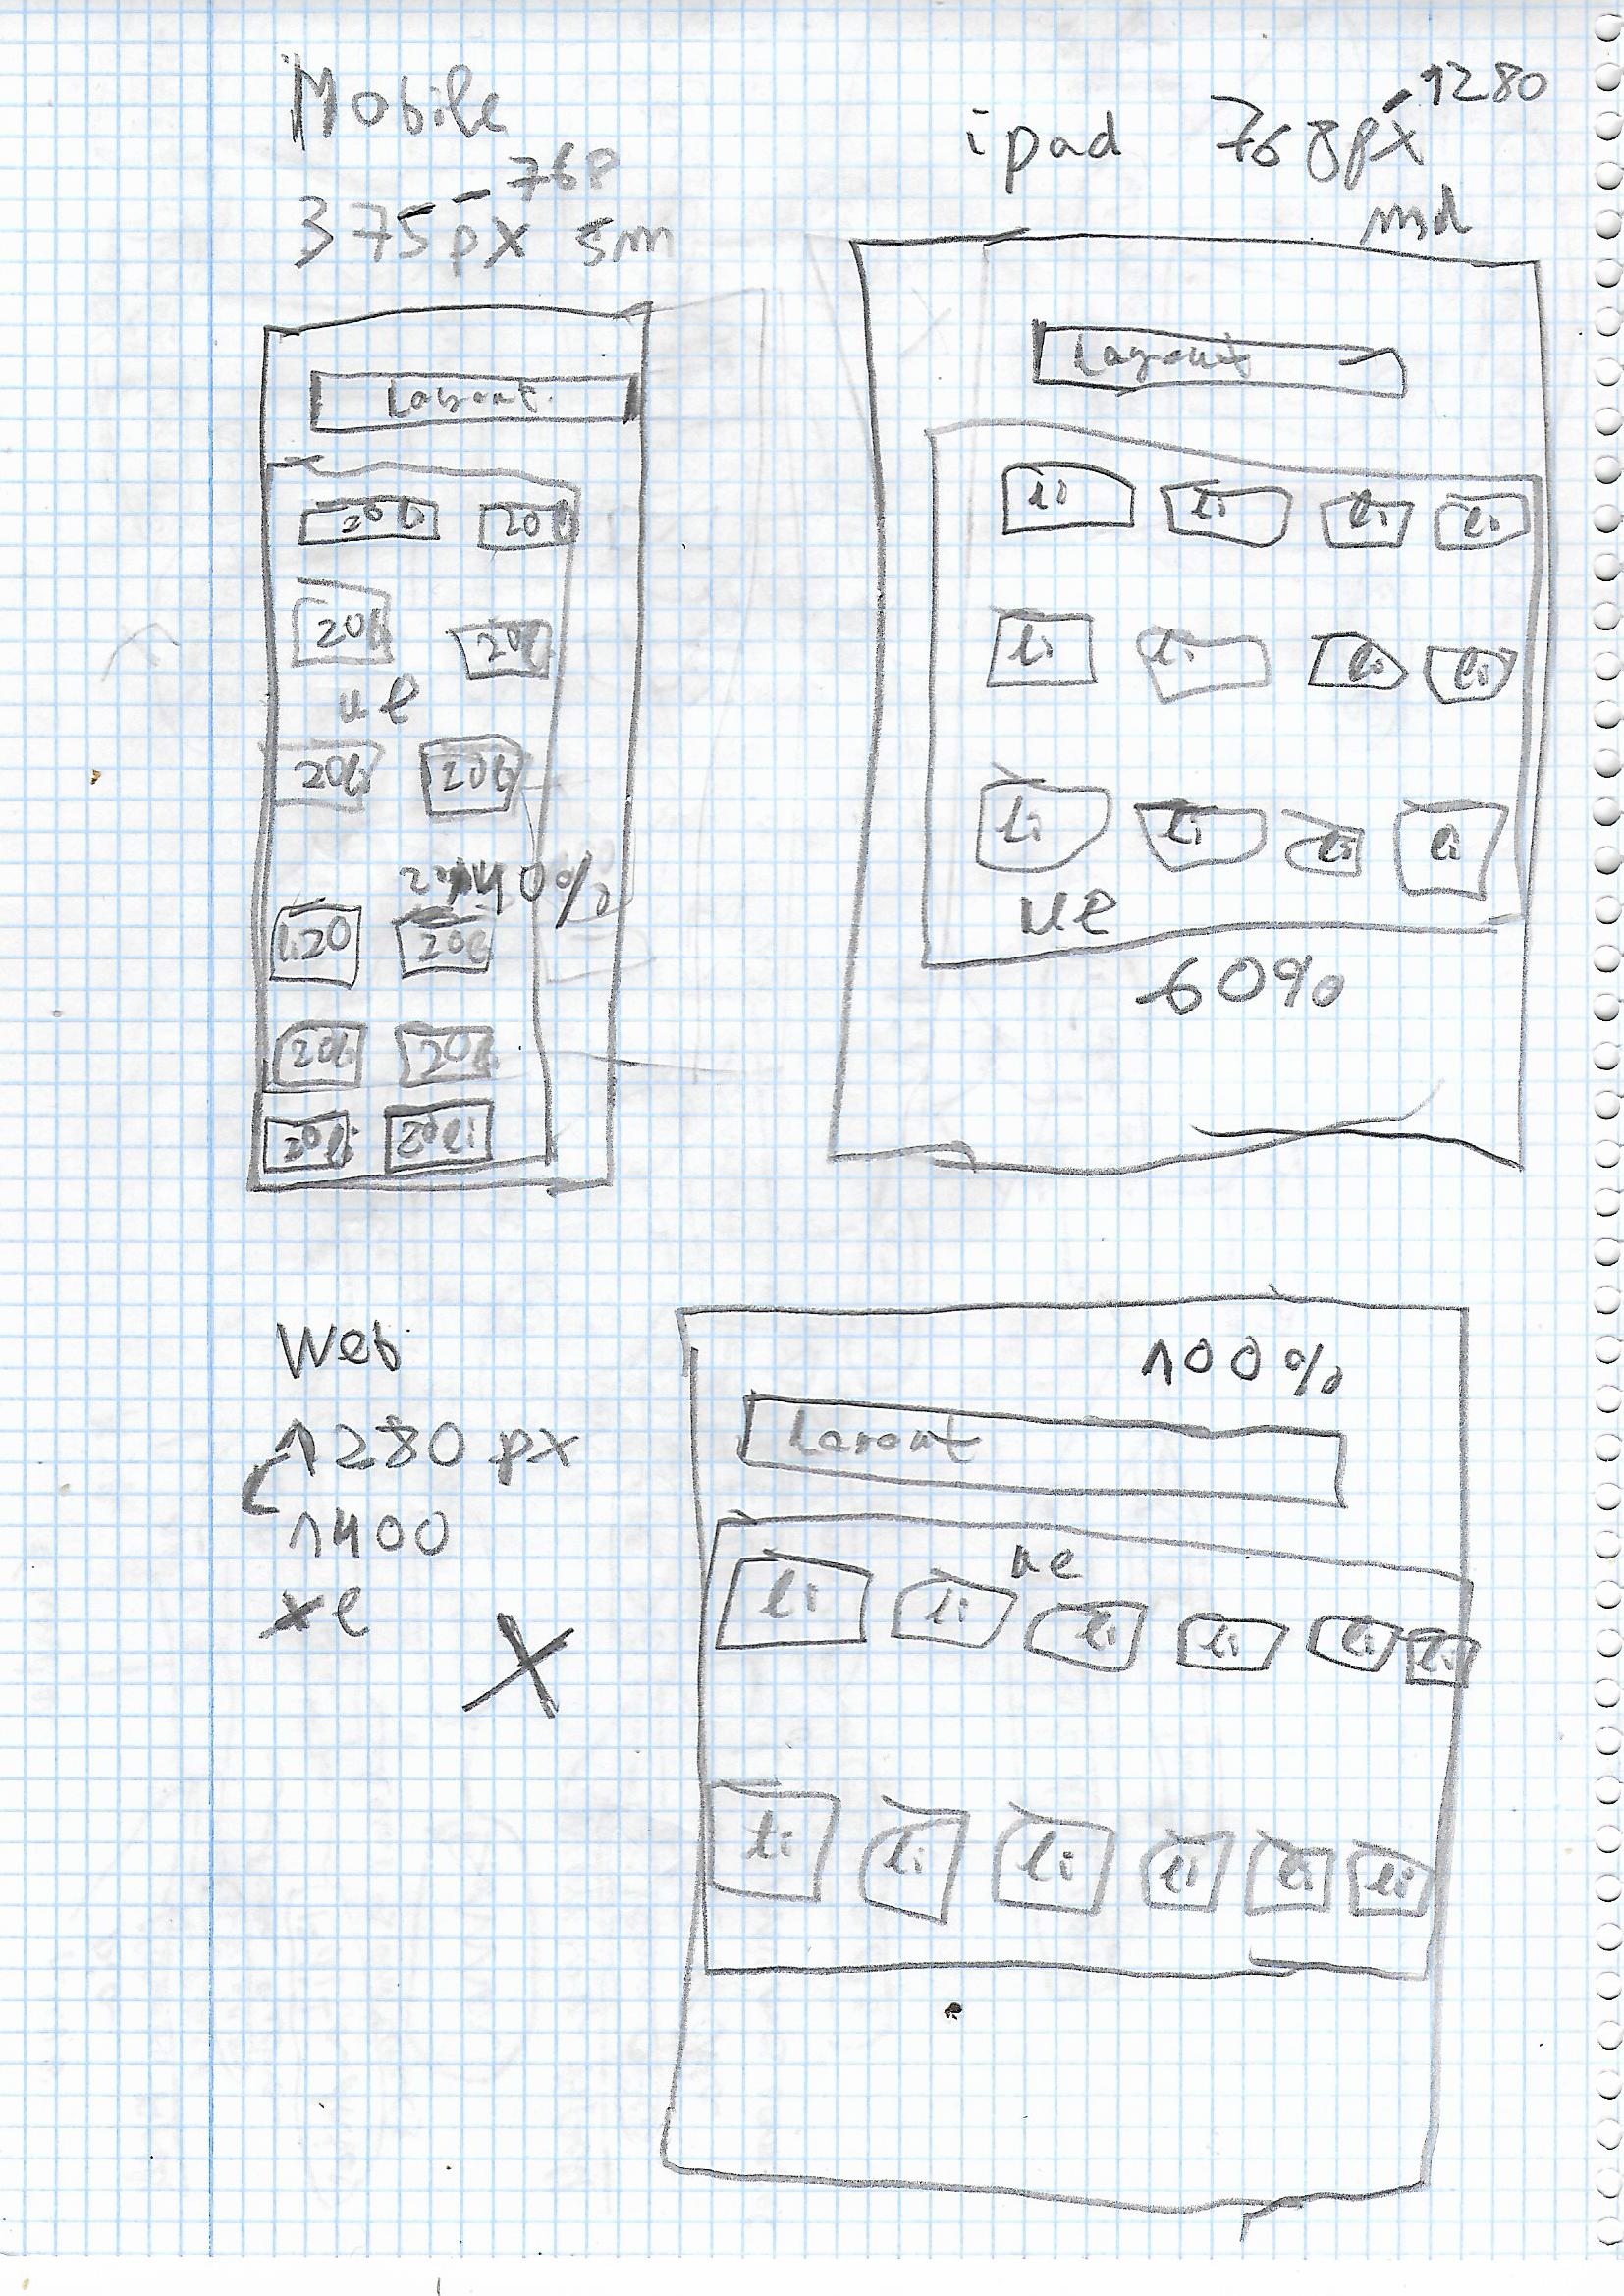 Mobile
375px - 768 sm
Layout
20li 20li
20li 20li
ul
20li 20li
40%
li20 20li
20li 20li
20li 20li
ipad 768px - 1280
md
Layout
li li li li
li li li li
li li li li
ul
60%
Web
1280 px
1400
xl
X
100%
Layout
ul
li li li li li li
li li li li li li